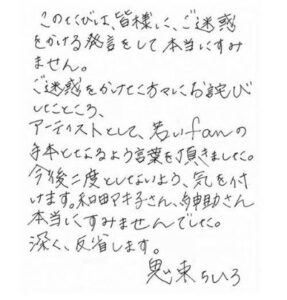 このたびは、皆様に、ご迷惑
をかける発言をして本当にすみ
ません。
ご迷惑をかけた方々にお詫び
したところ、
アーティストとして、若いfanの
手本となるよう言葉を頂きました。
今後二度としないよう、気を付
けます。和田アキ子さん、紳助さん
本当にすみませんでした。
深く、反省します。
鬼束ちひろ